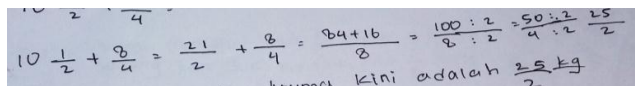 10 1/2 + 8/4 = 21/2 + 8/4 = 84+16/8 = 100 : 2/8 : 2 = 50 : 2/4 : 2 25/2
kini adalah 25 kg/2